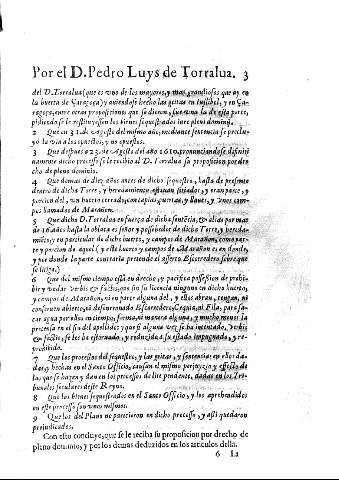 Por el D. Pedro Luys de Torralua. 3
del D. Torralua (que es vno de los mayores, y mas grandiosos que ay en
la huerta de Çaragoça) y auiendose hecho las gritas en
goça, entre otras proposiciones que se dieron, fue vna la de esta parte,
pidiendo se le restituyessen los bienes sequestrados iure pleni dominij.
2 Que en 31. de Agosto del mismo año, mediante sentencia se preclu
yò la via a los opuestos, y no opuestos.
3 Que despues a 23. de Agosto del año 1610. pronunciandose difiniti
uamente dicho processo se le recibio al D. Torralua su proposicion por dere
cho de pleno dominio.
4 Que demas de diez años antes de dicho sequestro, hasta de presente
dentro de dicha Torre, y heredamiento estauan sitiados, y eran parte, y
porcion del, vn huerto cerrado, con tapias, puertas, y llaues, y vnos cam
pos llamados de Marañon.
5 Que dicho D. Torralua en fuerça de dicha sentencia, & alias por mas
de 16 años hasta la oblata es señor y posseedor de dicha Torre, y hereda
miento, y en particular de dicho huerto, y campos de Marañon, como par
te y porcion de aquel (y este huerto y campos de Marañon es en donde,
y por donde la parte contraria pretende el açierto Escorredero sobre que
se litiga.)
6 Que del mismo tiempo està en derecho, y pacifica possession de prohi
bir y vedar verbis & facto, que sin su licencia ninguno en dicho huerto,
y campos de Marañon, ni en parte alguna del, y ellos abran, tengan, ni
construyan abierto, ni desaferrado Escorredero, Cequia, ni Fila, para sa
car agua por años ni tiempo, forma, ni manera alguna, y mucho menos la
pretensa en el fin del apellido: y que si alguna vez se ha intentado, verbis
& facto, se les ha estoruado, y reduzido a su estado impugnado, y re-
prohibido.
7 Que los processos del sequestro, y las gritas, y sentencia en ellos da-
das, y hechas en el Santo Officio, causan el mismo perjuyzio y efecto de
las que se hazen y dan en los processos de lite pendente, dadas en los Tri-
bunales seculares deste Reyno.
8 Que los bienes sequestrados en el Santo Officio, y los aprehendidos
en este processo son vnos mismos.
9 Que los del Plano no parecieron en dicho processo, y assi quedaron
prejudicados.
Con esto concluye, que se le reciba su proposicion por derecho de
pleno dominio, y por las damas deduzidos en los articulos della.
6 La